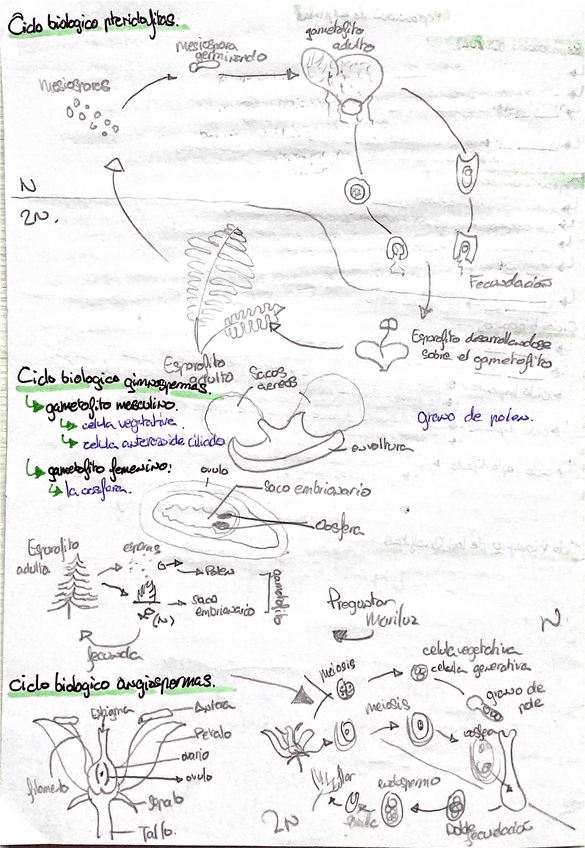 Ciclo biologico pteridofitas.
meiospora
germinando
gametofito
adulto
meiosporas
N
2N.
Fecundación
Esporofito desarrollandose
sobre el gametofito
Esporofito
adulto
Ciclo biologico gimnospermas.
gametofito masculino.
celula vegetativa.
celula anterozoide ciliado
gametofito femenino:
la oosfera.
Sacos
aereos
grano de polen.
envoltura
ovulo
Saco embrionario
Oosfera
Esporofito
adulta
esporas
Polen
saco
embrionario
(N)
gametofito
fecunda
Preguntar
Mariluz
N
Ciclo biologico angiospermas.
Estigma
Antera
Petalo
ovario
ovulo
filamento
Sepalo
Tallo.
meiosis
celula vegetativa
celula generativa
grano de
meiosis
endospermo
Doble
fecundación
2N